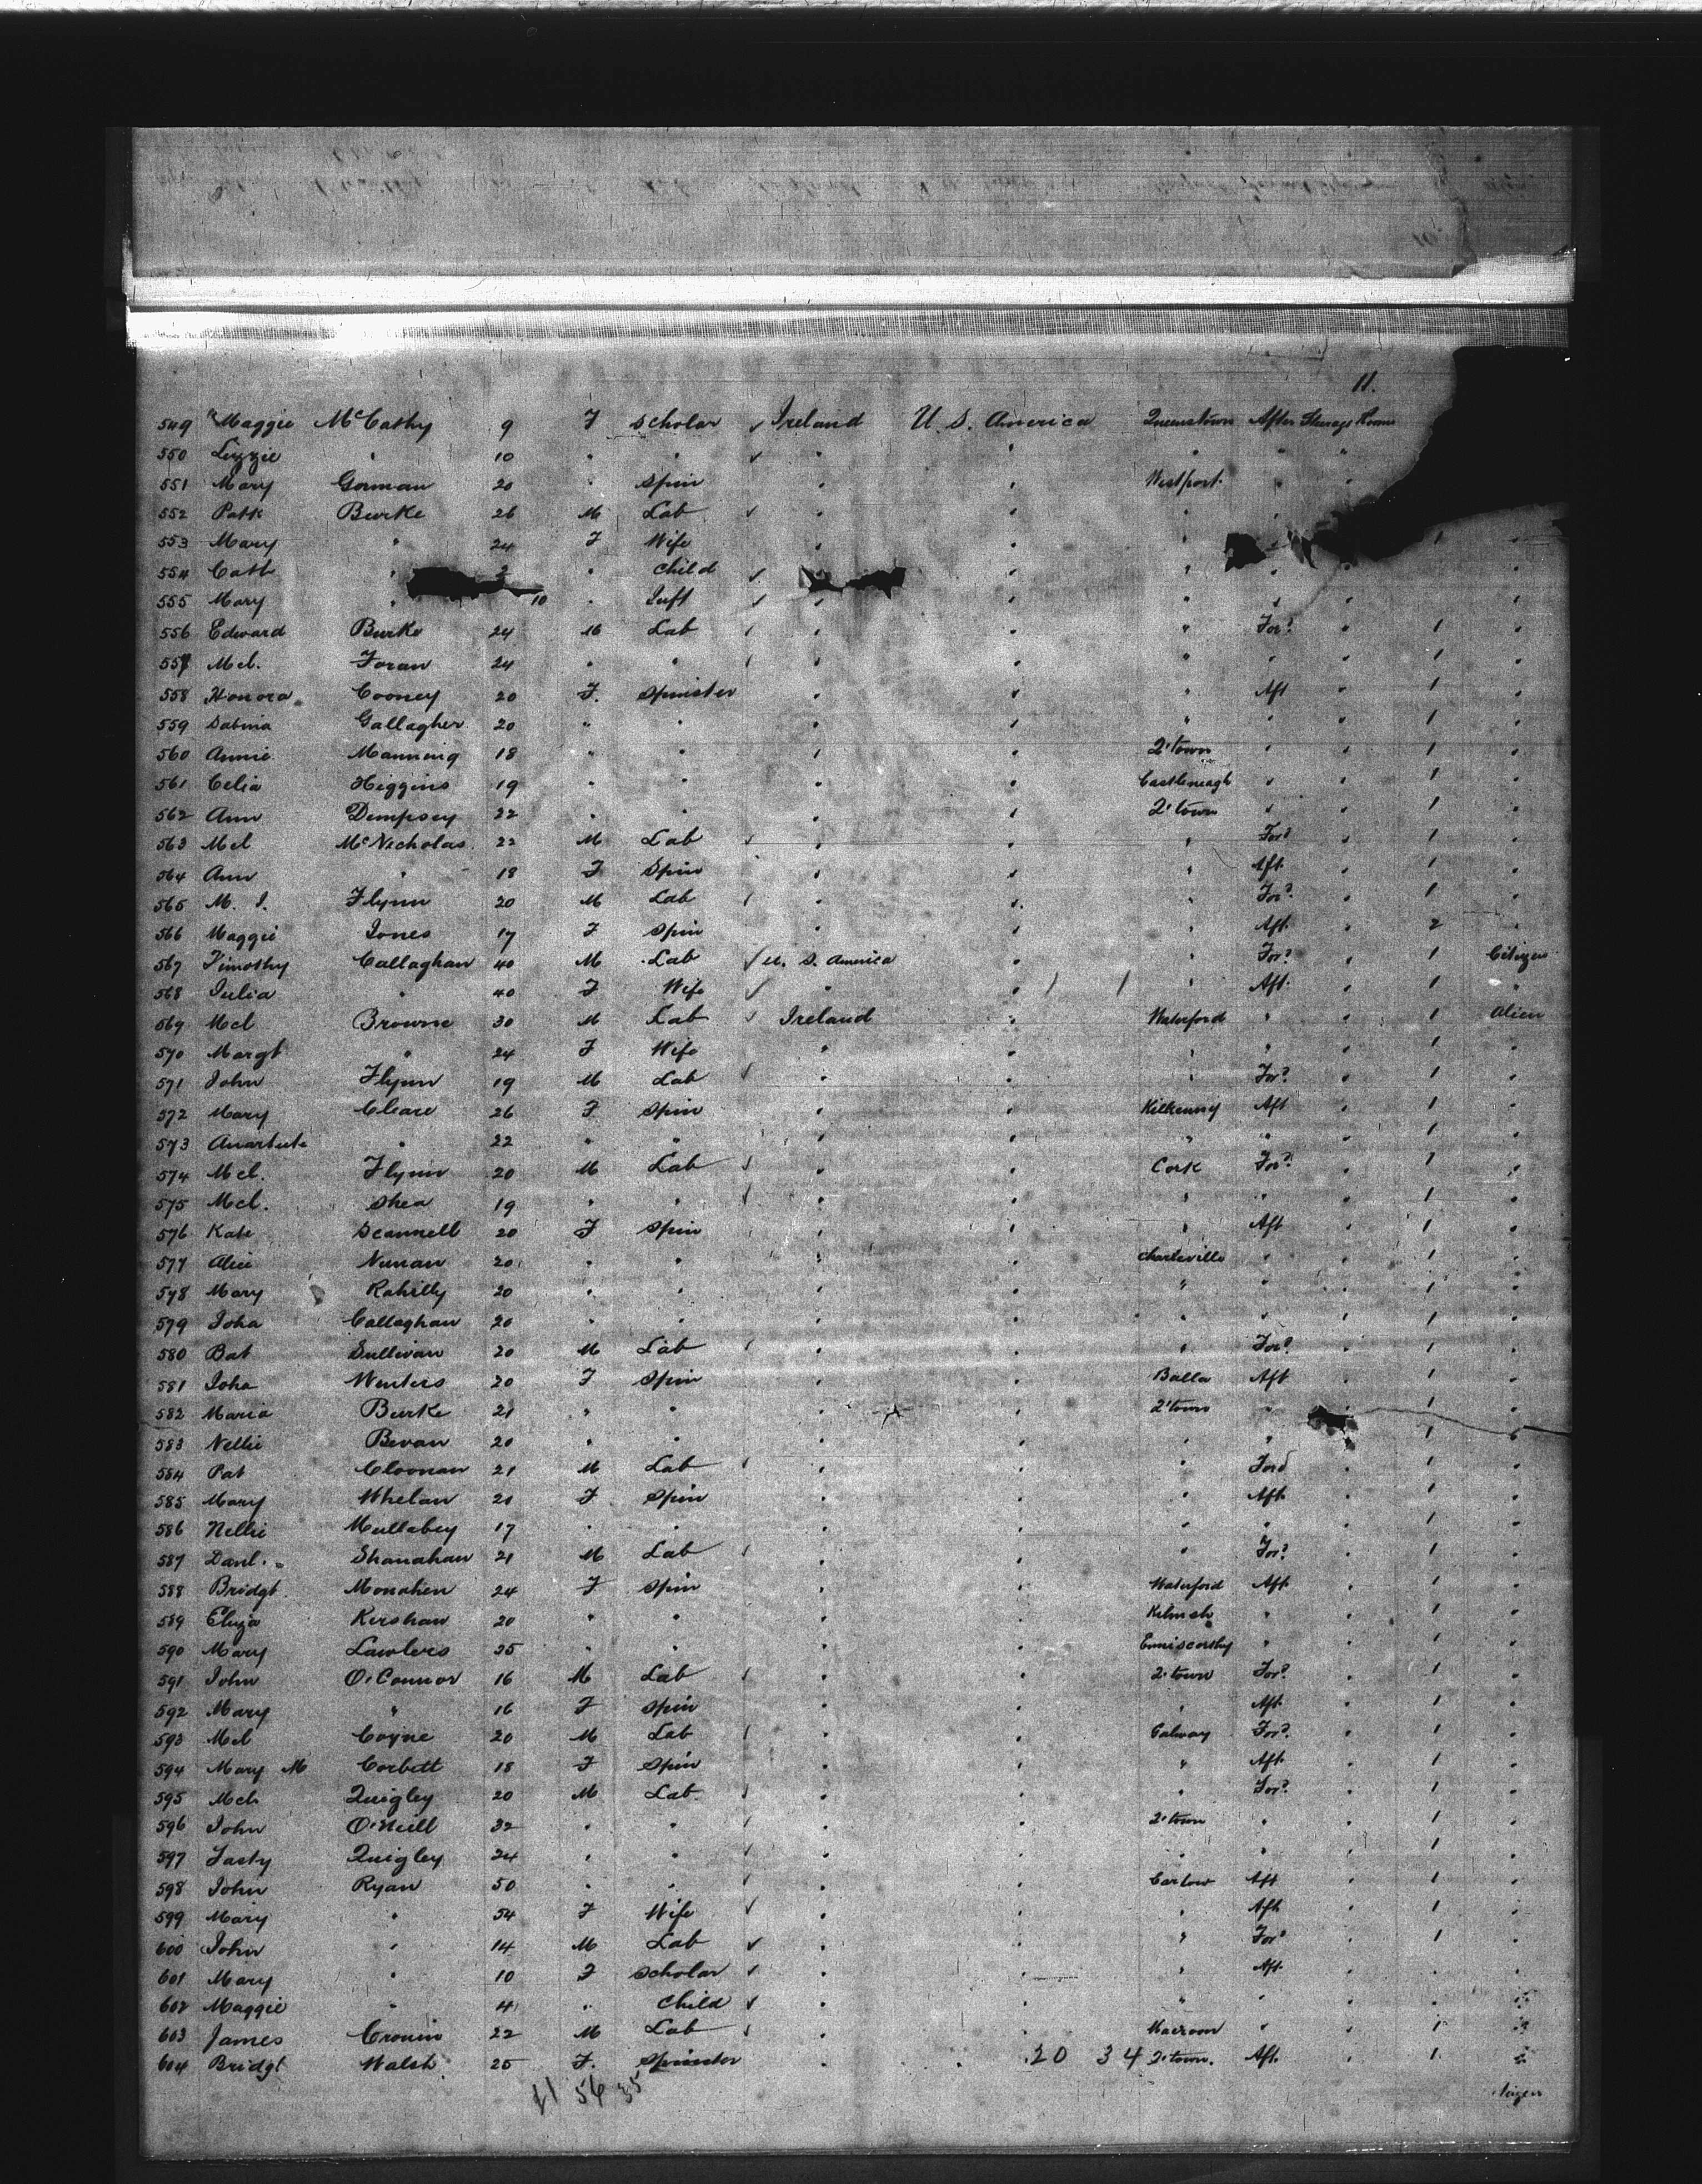 11.
549 "Maggie McCathy 9 F Scholar ✓ Ireland U. S. America Queenstown After Steerage Room
550 Lizzie " 10 " " ✓ " " " " "
551 Mary Gorman 20 " Spin " " Westport " "
552 Patk Burke 26 M Lab ✓ " " " "
553 Mary " 24 F Wife " " " " 1 "
554 Cath " 2 " Child ✓ " " " "
555 Mary " 10 " Inft ✓ " " " " " "
556 Edward Burke 24 M Lab ✓ " " " For? " 1 "
557 Mcl. Foran 24 " " ✓ " " " " " 1 "
558 Honora Cooney 20 F. Spinster " " " Aft " 1 "
559 Sabina Gallagher 20 " " " " " " " 1 "
560 Annie Manning 18 " " " " Q'town " " 1 "
561 Celia Higgins 19 " " " " Castlereagh " " 1 "
562 Ann Dempsey 22 " " " " Q'town " " 1 "
563 Mcl McNicholas 22 M Lab ✓ " " " For? " 1 "
564 Ann " 18 F Spin " " " Aft. " 1 "
565 M. J. Flynn 20 M Lab ✓ " " " For? " 1 "
566 Maggie Jones 17 F Spin " " " Aft. " 2 "
567 Timothy Callaghan 40 M Lab ✓ U. S. America " " For? " 1 Citizen
568 Julia " 40 F Wife ✓ " " / / " Aft. " 1 "
569 Mcl Browne 30 M Lab ✓ Ireland " Waterford " " 1 Alien
570 Margt " 24 F Wife " " " " " 1 "
571 John Flynn 19 M Lab ✓ " " " For? " 1 "
572 Mary Cleare 26 F Spin " " Kilkenny Aft " 1 "
573 " 22 " " " " " " " 1 "
574 Mcl. Flynn 20 M Lab ✓ " " Cork For? " 1 "
575 Mcl. Shea 19 " " ✓ " " " " " 1 "
576 Kate Scannell 20 F Spin " " " Aft " 1 "
577 Alice Nunan 20 " " " " Charleville " " 1 "
578 Mary Rahilly 20 " " " " " " " 1 "
579 Joha Callaghan 20 " " " " " " " 1 "
580 Bat Sullivan 20 M Lab ✓ " " " For? " 1 "
581 Joha Winters 20 F Spin " " Balla Aft " 1 "
582 Maria Burke 21 " " " " Q'town " " 1 "
583 Nellie Bevan 20 " " " " " " " 1 "
584 Pat Cloonan 21 M Lab ✓ " " " Ford " 1 "
585 Mary Whelan 21 F Spin " " " Aft. " 1 "
586 Nellie Mullabey 17 " " " " " " " 1 "
587 Danl. Shanahan 21 M Lab ✓ " " " For? " 1 "
588 Bridgt. Monahen 24 F Spin " " Waterford Aft. " 1 "
589 Eliza Kershaw 20 " " " " " " 1 "
590 Mary Lawlers 25 " " " " Enniscorthy " " 1 "
591 John O'Connor 16 M Lab ✓ " " Q'town For? " 1 "
592 Mary " 16 F Spin " " " Aft. " 1 "
593 Mcl Coyne 20 M Lab ✓ " " Galway For? " 1 "
594 Mary M Corbett 18 F Spin " " " Aft. " 1 "
595 Mch Quigley 20 M Lab. ✓ " " " For? " 1 "
596 John O'Neill 32 " " ✓ " " Q'town " " 1 "
597 Quigley 24 " " ✓ " " " " " 1 "
598 John Ryan 50 " " ✓ " " Carlow Aft " 1 "
599 Mary " 54 F Wife ✓ " " " Aft " 1 "
600 John " 14 M Lab ✓ " " " For? " 1 "
601 Mary " 10 F Scholar ✓ " " " Aft. " " "
602 Maggie " 4 " Child ✓ " " " " " " "
603 James Cronin 22 M Lab ✓ " " Macroom " " 1 "
604 Bridgt Walsh 25 F. Spinster " " 20 34 Q'town. Aft. " 1 "
21 56 35